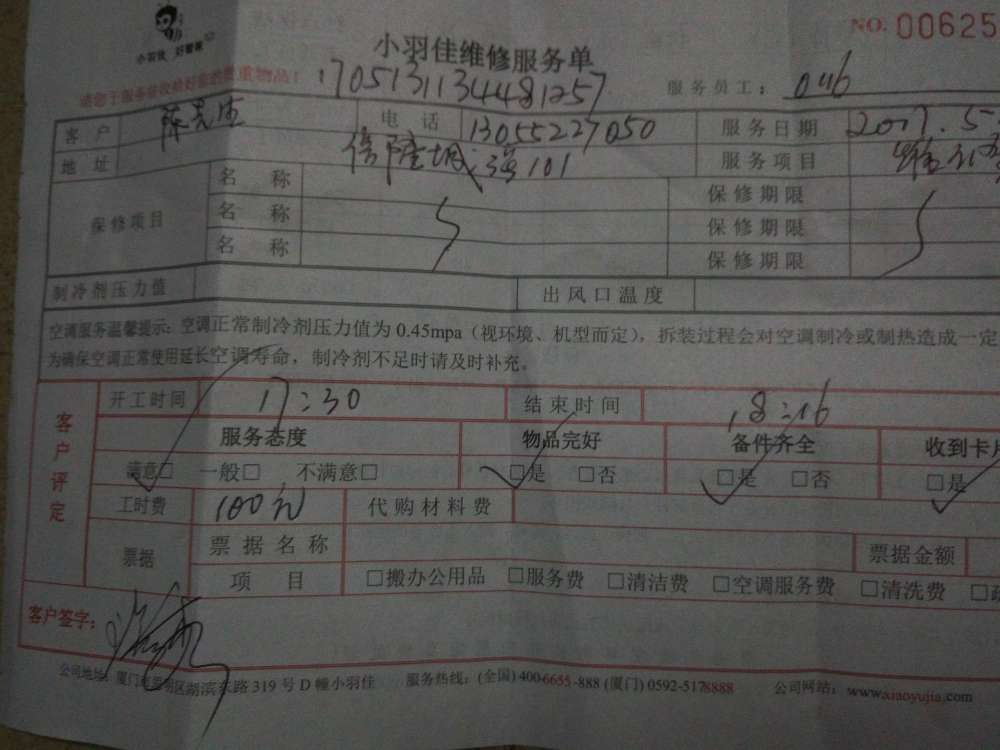 NO. 00625
小羽佳 好管家
小羽佳维修服务单
请您于服务前收拾好您的贵重物品!
17051311344481257
服务员工: 046
客户 陈先生 电话 13055227050 服务日期 2017.5.
地址 101 服务项目 维修
保修项目 名称 保修期限
名称 保修期限
名称 保修期限
制冷剂压力值 出风口温度
空调服务温馨提示:空调正常制冷剂压力值为 0.45mpa(视环境、机型而定),拆装过程会对空调制冷或制热造成一定
为确保空调正常使用延长空调寿命,制冷剂不足时请及时补充。
客户评定
开工时间 17:30 结束时间 18:16
服务态度 物品完好 备件齐全 收到卡片
满意□ 一般□ 不满意□ □是 □否 □是 □否 □是
工时费 100元 代购材料费
票据 票据名称 票据金额
项目 □搬办公用品 □服务费 □清洁费 □空调服务费 □清洗费
客户签字:
公司地址:厦门市思明区湖滨东路 319 号 D 幢小羽佳 服务热线:(全国) 400-6655-888 (厦门) 0592-5178888 公司网站:www.xiaoyujia.com